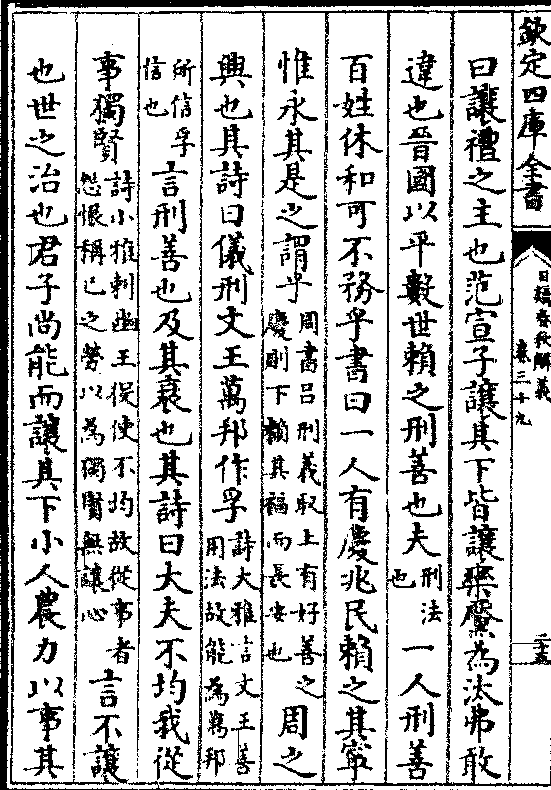 欽定四庫全書
日講春秋解義
卷三十九
二十五
曰讓禮之主也范宣子讓其下皆讓欒黶為汰弗敢
違也晉國以平數世賴之刑善也夫刑法也一人刑善
百姓休和可不務乎書曰一人有慶兆民賴之其寧
惟永其是之謂乎周書呂刑義取上有好善之慶則下賴其福而長安也周之
興也其詩曰儀刑文王萬邦作孚詩大雅言文王善用法故能為萬邦
所信孚信也言刑善也及其衰也其詩曰大夫不均我從
事獨賢詩小雅刺幽王役使不均故從事者怨恨稱已之勞以為獨賢無讓心言不讓
也世之治也君子尚能而讓其下小人農力以事其